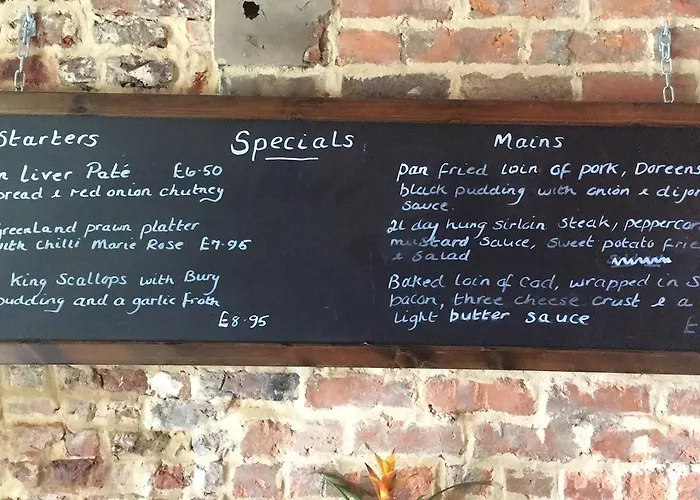 Specials
Starters
n Liver Paté £6.50
bread & red onion chutney
Greenland prawn platter
with chilli Marie Rose £7.95
King Scallops with Bury
pudding and a garlic froth
£8.95
Mains
pan fried loin of pork, Doreens
black pudding with onion & dijon
sauce.
21 day hung sirloin steak, peppercor
mustard sauce, sweet potato frie
& salad
Baked loin of cod, wrapped in S
bacon, three cheese crust & a
light butter sauce
£